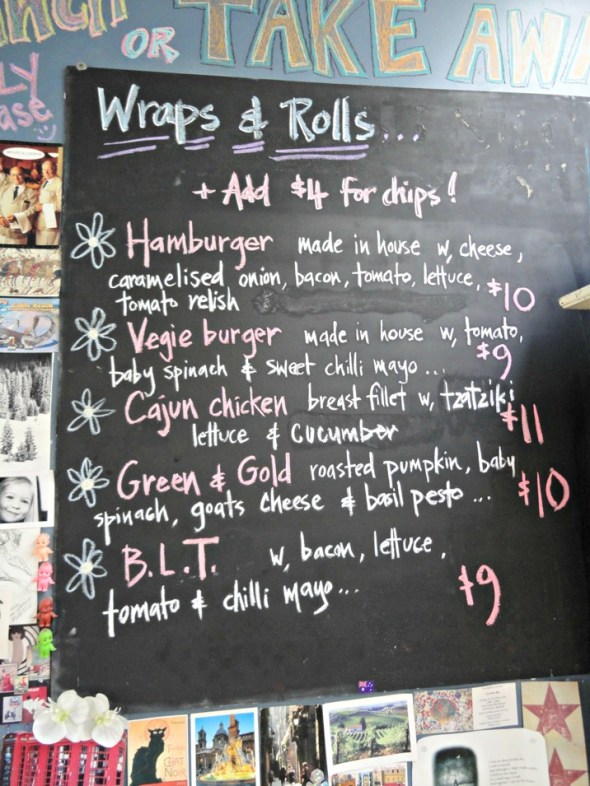 OR TAKE AWA
LY
ase
Wraps & Rolls...
+ Add $4 for chips!
Hamburger made in house w, cheese,
caramelised onion, bacon, tomato, lettuce,
tomato relish $10
Vegie burger made in house w, tomato,
baby spinach & sweet chilli mayo... $9
Cajun chicken breast fillet w, tzatziki
lettuce & cucumber $11
Green & Gold roasted pumpkin, baby
spinach, goats cheese & basil pesto... $10
B.L.T. w, bacon, lettuce,
tomato & chilli mayo... $9